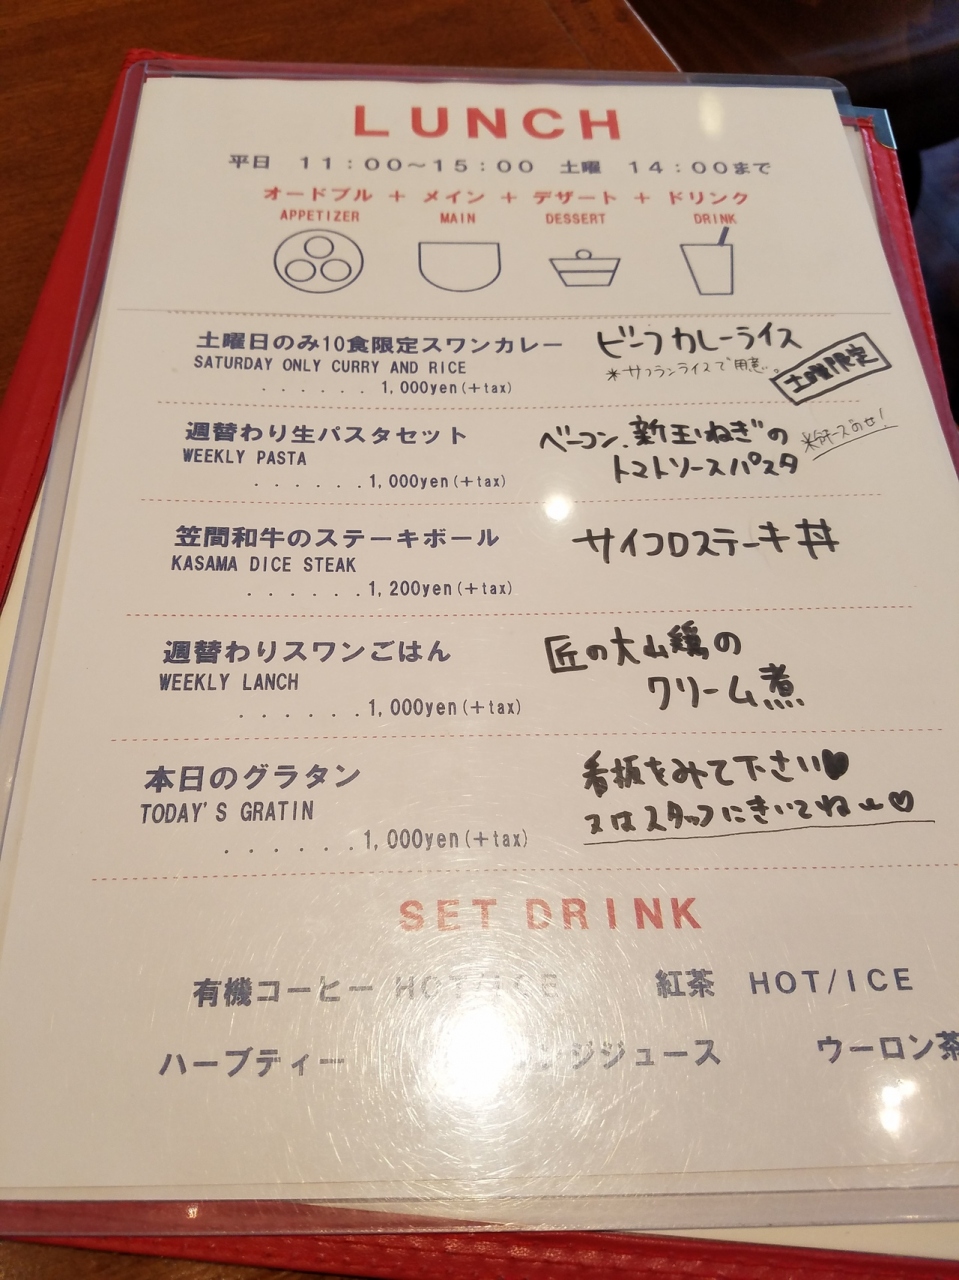 LUNCH
平日 11:00〜15:00 土曜 14:00まで
オードブル + メイン + デザート + ドリンク
APPETIZER MAIN DESSERT DRINK
土曜日のみ10食限定スワンカレー ビーフカレーライス
SATURDAY ONLY CURRY AND RICE ＊サフランライスで用意。 土曜限定
. . . . . . 1,000yen(+tax)
週替わり生パスタセット ベーコン、新玉ねぎの
WEEKLY PASTA トマトソースパスタ
. . . . . . 1,000yen(+tax)
笠間和牛のステーキボール サイコロステーキ丼
KASAMA DICE STEAK
. . . . . . 1,200yen(+tax)
週替わりスワンごはん 匠の大山鶏の
WEEKLY LANCH クリーム煮
. . . . . . 1,000yen(+tax)
本日のグラタン 看板をみて下さい♥
TODAY'S GRATIN 又はスタッフにきいてね♡
. . . . . . 1,000yen(+tax)
SET DRINK
有機コーヒー HOT/ICE 紅茶 HOT/ICE
ハーブティー ンジジュース ウーロン茶